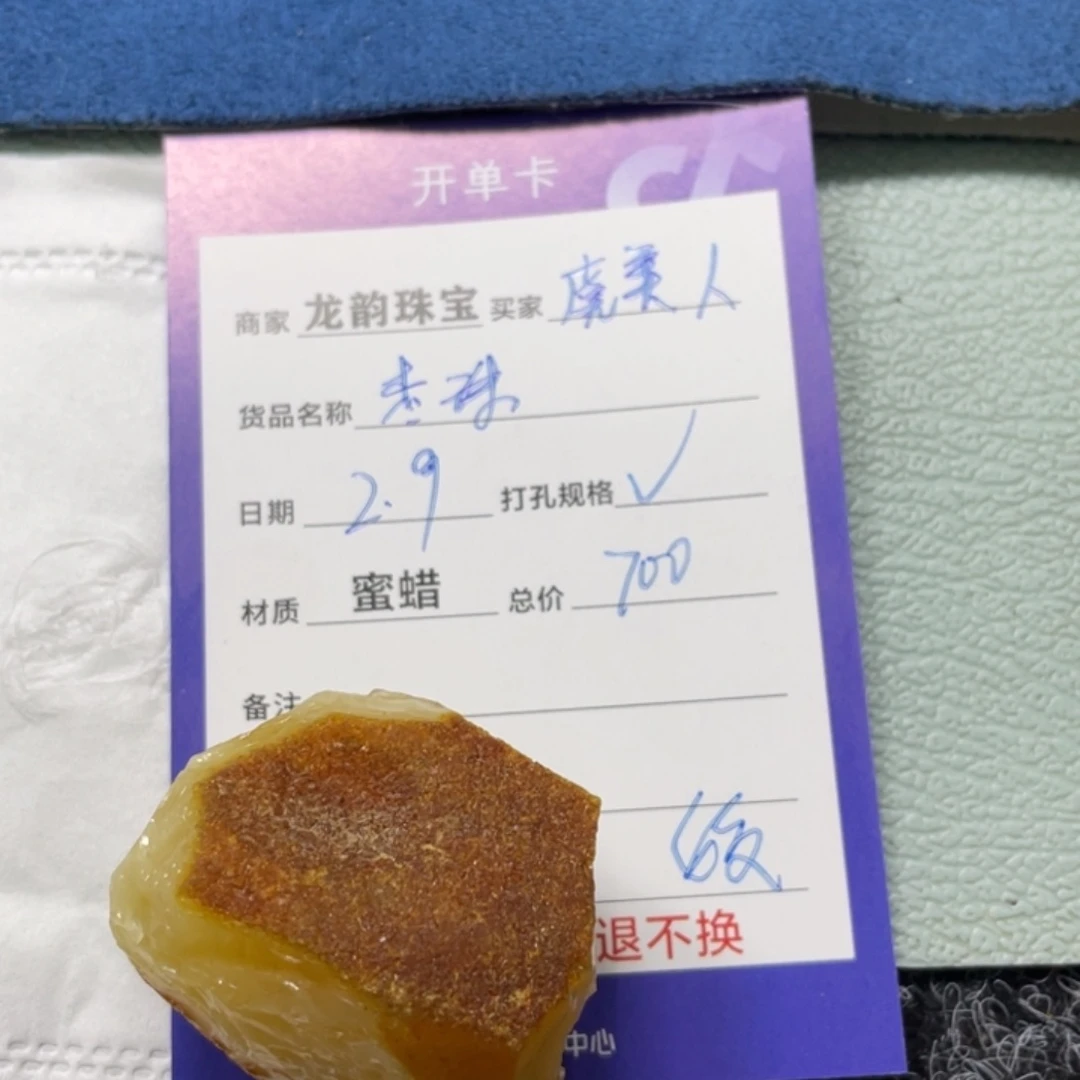 开单卡
商家 龙韵珠宝 买家 虞美人
货品名称
日期 2.9 打孔规格 ✓
材质 蜜蜡 总价 700
备注
退不换
中心